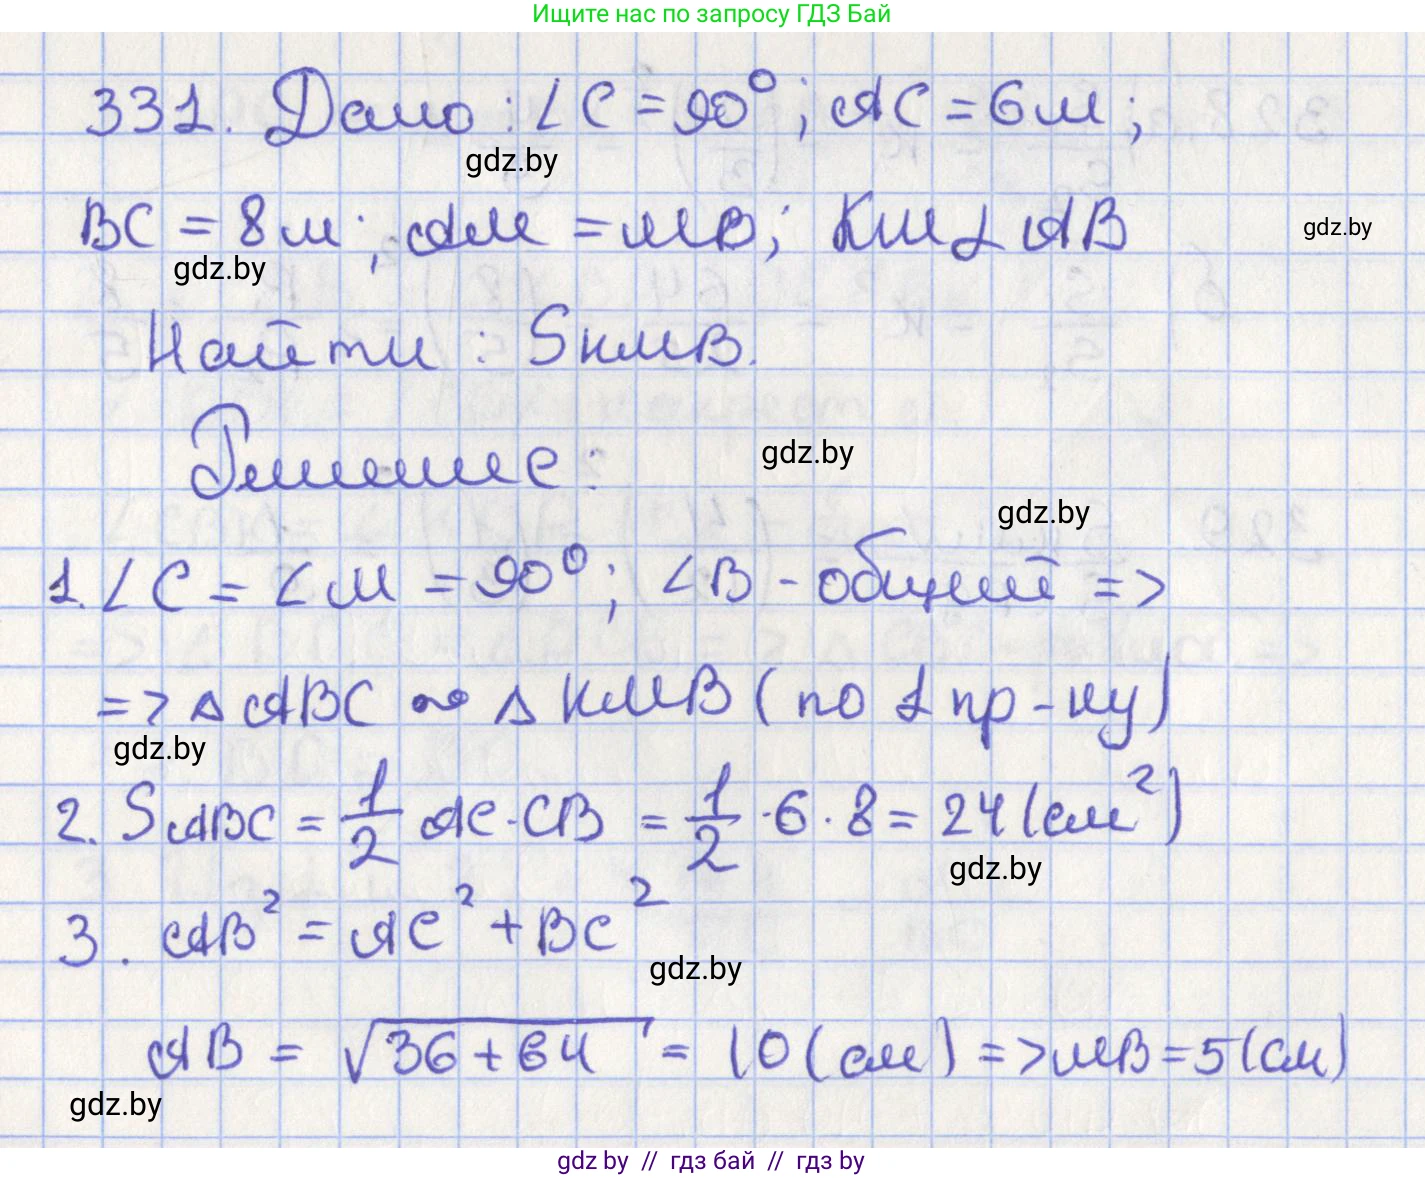 Ищите нас по запросу ГДЗ Бай
331. Дано: ∠C = 90°; AC = 6м;
gdz.by
BC = 8м; AM = MB; KM ⊥ AB
gdz.by
gdz.by
Найти: SKMB.
Решение:
gdz.by
gdz.by
1. ∠C = ∠M = 90°; ∠B - общий =>
=> △ ABC ~ △ KMB (по 1 пр-ку)
gdz.by
2. SABC = 1/2 AC · CB = 1/2 · 6 · 8 = 24 (см²)
gdz.by
3. AB² = AC² + BC²
gdz.by
AB = √36 + 64 = 10 (см) => MB = 5 (см)
gdz.by
gdz by // гдз бай // гдз by